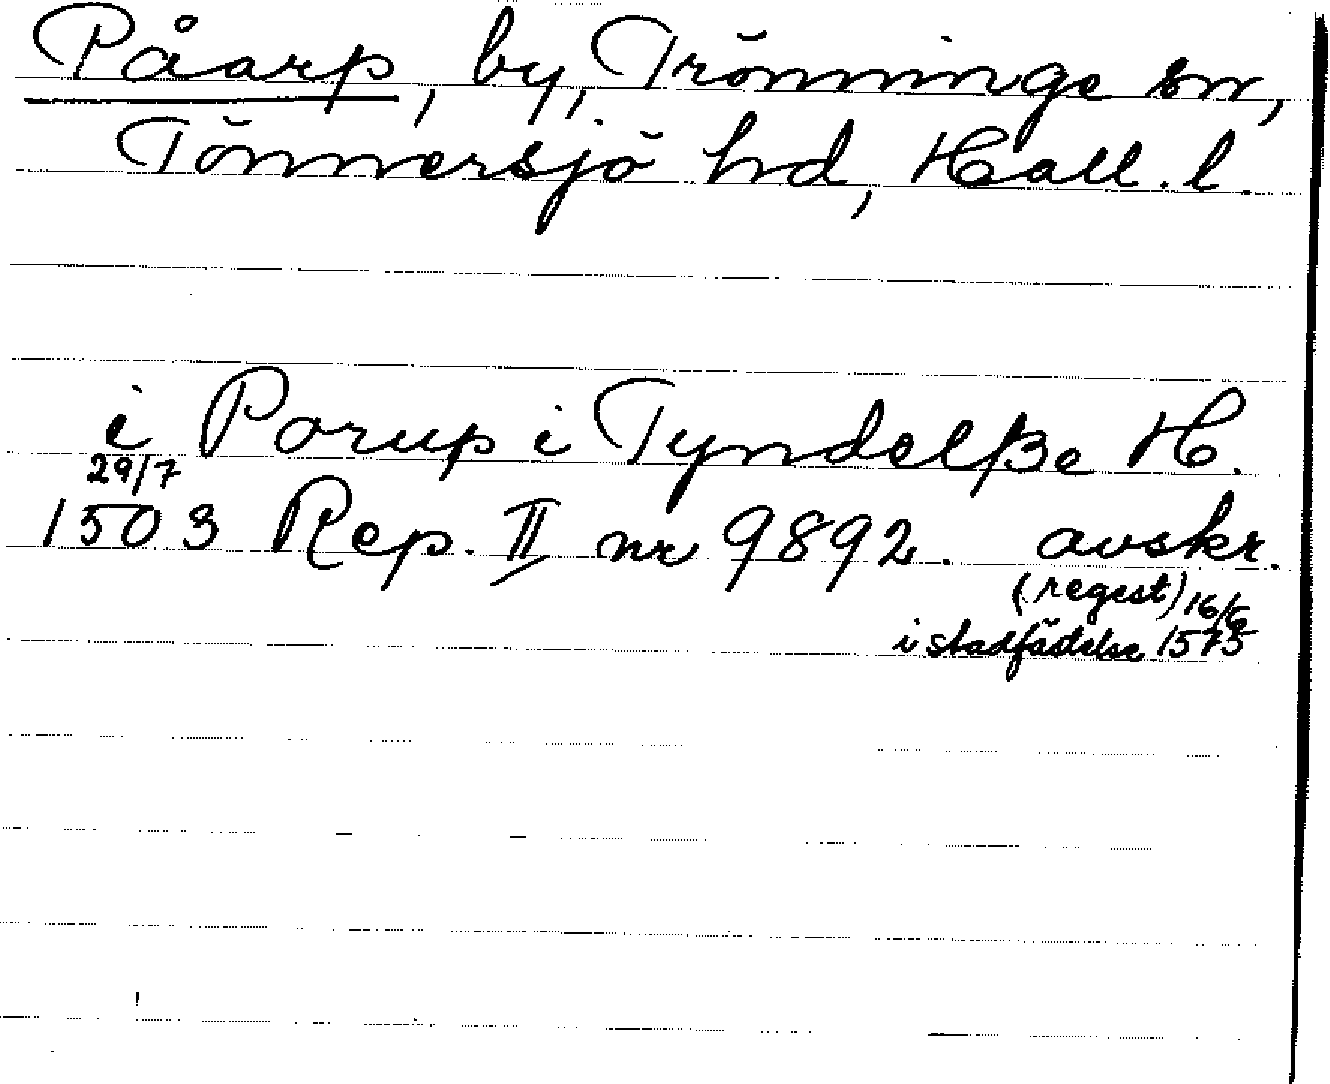 Påarp, by, Trönninge sn,
Tönnersjö hd, Hall. l.
i Porup i Tyndelsze H.
29/7
1503 Rep. II nr 9892. avskr.
(regest) 16/6
i stadfädelse 1575